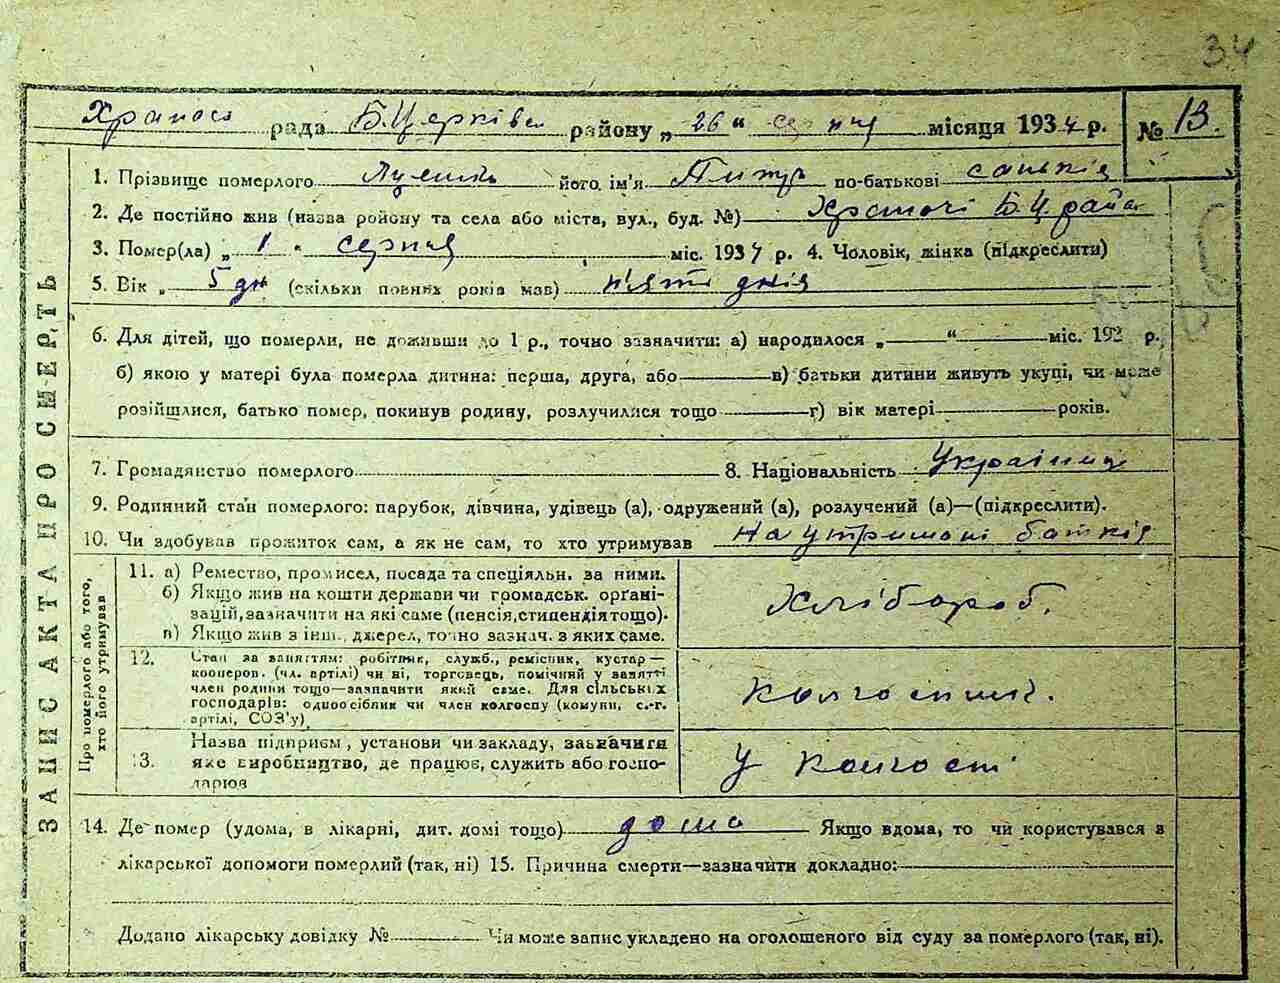 34
рада Б.Церківсь району „26“ серпня місяця 1934 р. № 13.
ЗАПИС АКТА ПРО СМЕРТЬ
1. Прізвище померлого його ім'я по-батькові
2. Де постійно жив (назва району та села або міста, вул., буд. №) Б.Ц. райо
3. Помер(ла) „1“ серпня міс. 1934 р. 4. Чоловік, жінка (підкреслити)
5. Вік „ 5 дн (скільки повних років мав) п'ять днів
6. Для дітей, що померли, не доживши до 1 р., точно зазначити: а) народилося „—“ — міс. 192 р.,
б) якою у матері була померла дитина: перша, друга, або — в) батьки дитини живуть укупі, чи може
розійшлися, батько помер, покинув родину, розлучилися тощо — г) вік матері — років.
7. Громадянство померлого 8. Національність Українец
9. Родинний стан померлого: парубок, дівчина, удівець (а), одружений (а), розлучений (а)—(підкреслити).
10. Чи здобував прожиток сам, а як не сам, то хто утримував На утримані батків
Про померлого або того, хто його утримував
11. а) Ремество, промисел, посада та спеціяльн. за ними.
б) Якщо жив на кошти держави чи громадськ. органі-
зацій, зазначити на які саме (пенсія, стипендія тощо).
в) Якщо жив з інш. джерел, точно зазнач. з яких саме.
Хлібороб.
12. Стан за заняттям: робітник, служб., ремісник, кустар—
кооперов. (чл. артілі) чи ні, торговець, помічний у занятті
член родини тощо—зазначити який саме. Для сільських
господарів: одноосібник чи член колгоспу (комуни, с.-г.
артілі, СОЗ'у)
колгоспник.
13. Назва підприєм, установи чи закладу, зазначити
яке виробництво, де працює, служить або госпо-
дарює
У колгоспі
14. Де помер (удома, в лікарні, дит. домі тощо) дома Якщо вдома, то чи користувався з
лікарської допомоги померлий (так, ні) 15. Причина смерти—зазначити докладно:
Додано лікарську довідку № — Чи може запис укладено на оголошеного від суду за померлого (так, ні).